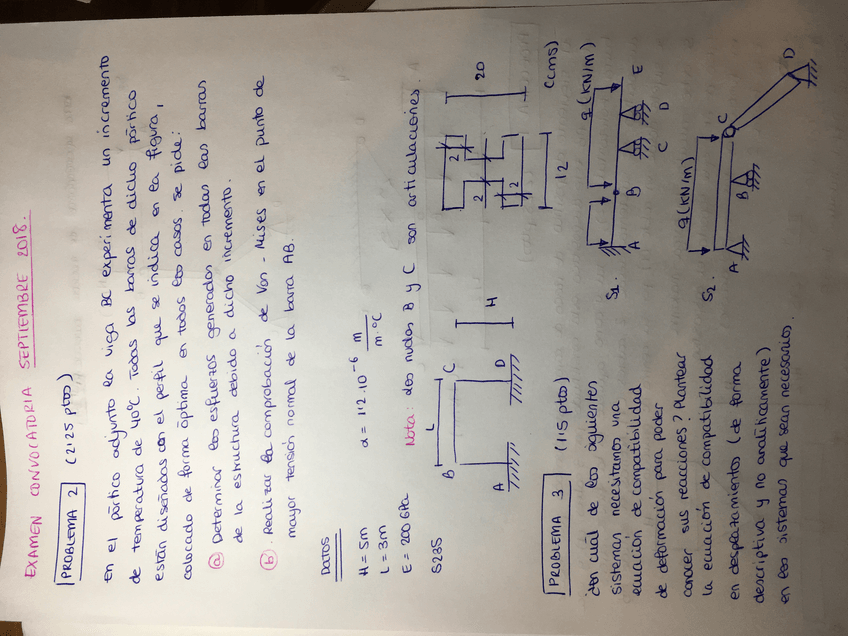 EXAMEN CONVOCATORIA SEPTIEMBRE 2018.
PROBLEMA 2 (2'25 ptos)
En el pórtico adjunto la viga BC experimenta un incremento
de temperatura de 40°C. Todas las barras de dicho pórtico
están diseñadas con el perfil que se indica en la figura,
colocado de forma óptima en todos los casos. Se pide:
a Determinar los esfuerzos generados en todas las barras
de la estructura debido a dicho incremento.
b. Realizar la comprobación de Von-Mises en el punto de
mayor tensión normal de la barra AB.
DATOS
H = 5m
L = 3m
E = 200 GPa
S235
α = 1'2·10-6 m/m·°C
Nota: los nudos B y C son articulaciones.
L
B
C
H
A
D
2
2
2
20
12
(cms)
PROBLEMA 3 (1'15 ptos)
¿En cuál de los siguientes
sistemas necesitamos una
ecuación de compatibilidad
de deformación para poder
conocer sus reacciones? Plantear
la ecuación de compatibilidad
en desplazamientos (de forma
descriptiva y no analíticamente)
en los sistemas que sean necesarios.
S1.
q(kN/m)
A
B
C
D
E
S2.
q(kN/m)
A
B
C
D